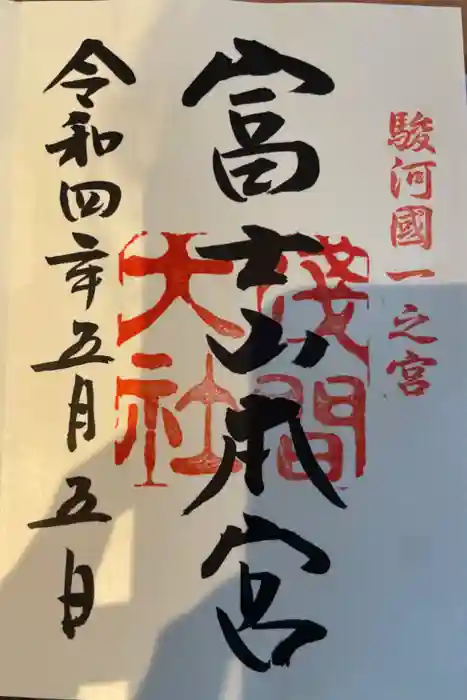 駿河國一之宮
富士山本宮
浅間
大社
令和四年五月五日